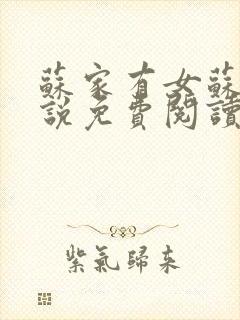 蘇家有女蘇
說免費閱讀
紫氣歸來